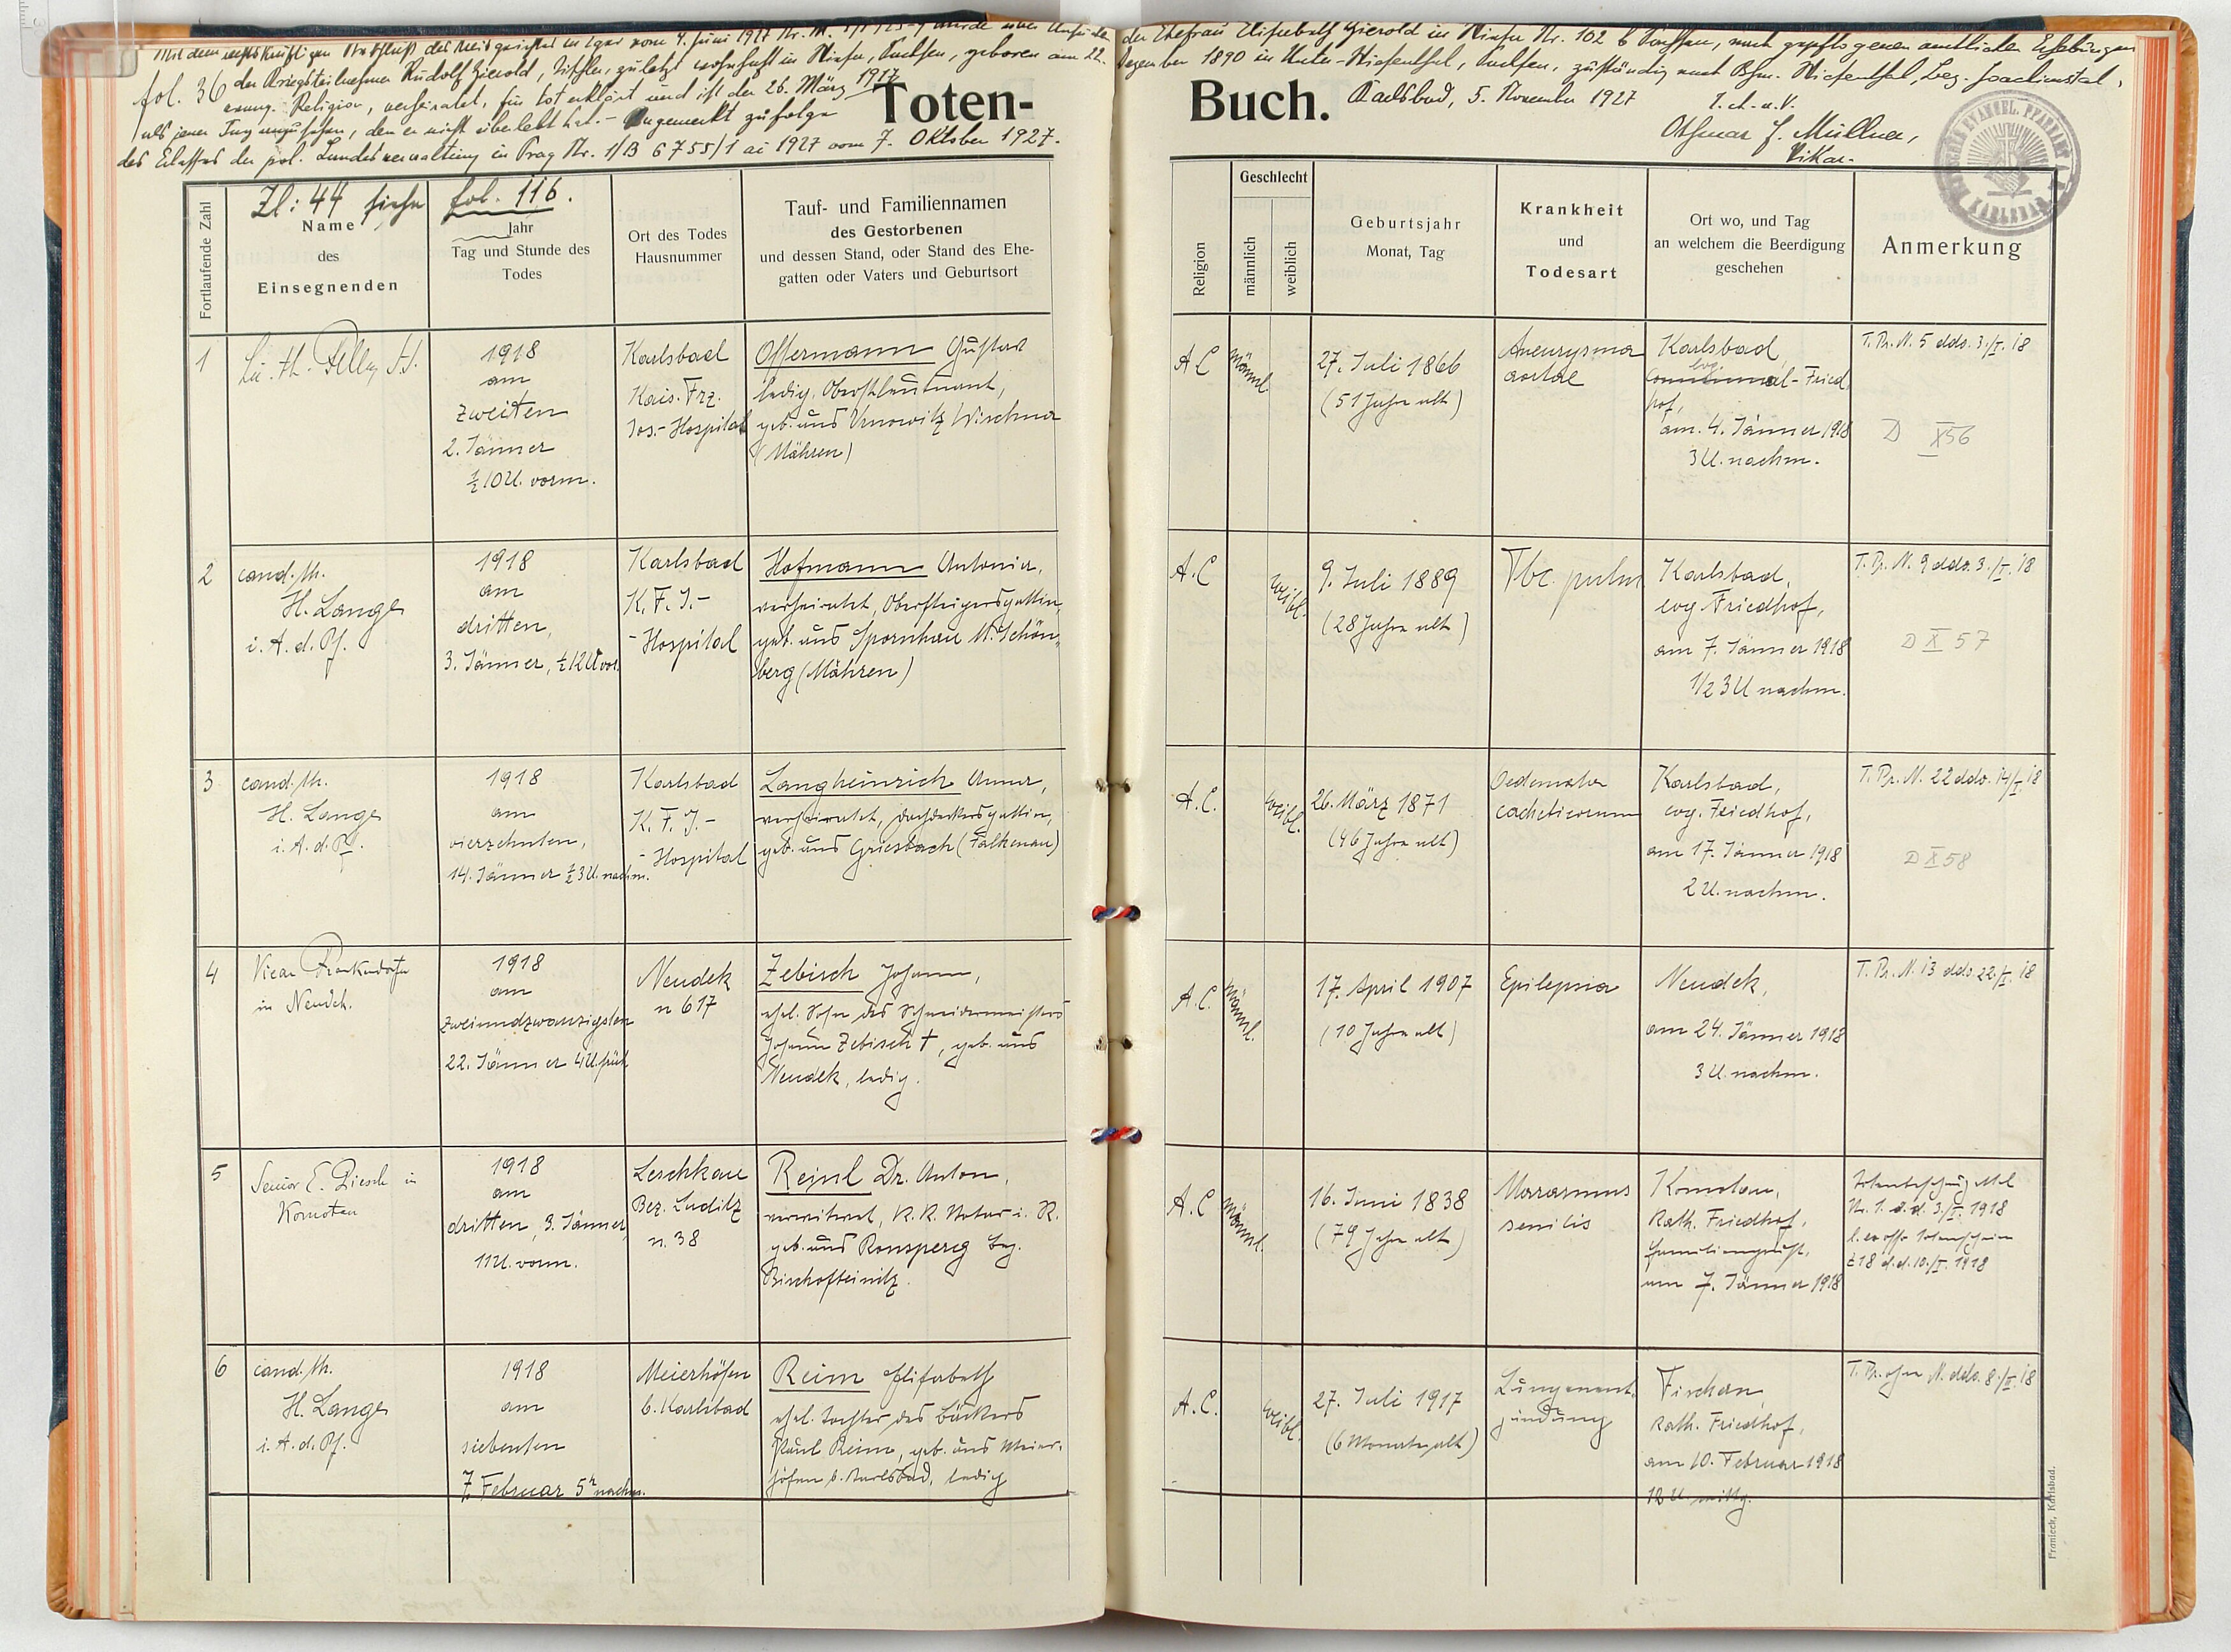 Mit dem rechtskräftigen Beschluß des Kreisgerichtes in Eger vom 4. Juni 1927 Nr. wurde über Ansuchen der Ehefrau Elisabeth Gierold in Nr. 102 b Sachsen, nach gepflogenen amtlichen Erhebungen
fol. 36 der Kriegsteilnehmer Rudolf Gierold, Tischler, zuletzt wohnhaft in Sachsen, geboren am 22. Dezember 1890 in Unter-Wiesenthal, Sachsen, zuständig nach Bhm. Wiesenthal, Bez. Joachimstal,
evang. Religion, verheiratet, für tot erklärt und ist der 26. März 1917
als jener Tag anzusehen, den er nicht überlebt hat. - Angemerkt zufolge
des Erlasses der pol. Landesverwaltung in Prag Nr. 1/B 6755/1 ai 1927 vom 7. Oktober 1927.
Karlsbad, 5. November 1927
Othmar J. Müllner,
Vikar.
EVANGEL. PFARRAMT A.
KARLSBAD
Toten-
Buch.
Zl: 44 siehe fol. 116.
Fortlaufende Zahl
Name
des
Einsegnenden
Jahr
Tag und Stunde des
Todes
Ort des Todes
Hausnummer
Tauf- und Familiennamen
des Gestorbenen
und dessen Stand, oder Stand des Ehe-
gatten oder Vaters und Geburtsort
Religion
Geschlecht
männlich
weiblich
Geburtsjahr
Monat, Tag
Krankheit
und
Todesart
Ort wo, und Tag
an welchem die Beerdigung
geschehen
Anmerkung
1
1918
am
zweiten
2. Jänner
½10 U. vorm.
Karlsbad
Kais. Frz.
Jos.-Hospital
Offermann Gustav
ledig, Oberstleutnant,
geb. aus Wischau
(Mähren)
A C
männl.
27. Juli 1866
(51 Jahre alt)
Aneurysma
aortae
Karlsbad
evg.
Communal-Fried
hof,
am 4. Jänner 1918
3 U. nachm.
T. Pr. N. 5 ddo. 3./I. 18
D X 56
2
cand. th.
H. Lange
i. A. d. Pf.
1918
am
dritten,
3. Jänner, ½12 U vor.
Karlsbad
K. F. J.-
-Hospital
Hofmann Antonia,
verheiratet, Obersteigersgattin,
geb. aus Spornhau M. Schön-
berg (Mähren)
A.C
weibl.
9. Juli 1889
(28 Jahre alt)
Tbc. pulm
Karlsbad,
evg. Friedhof,
am 7. Jänner 1918
1/2 3 U nachm.
T. Pr. N. 9 ddo. 3./I. 18
D X 57
3
cand. th.
H. Lange
i. A. d. Pf.
1918
am
vierzehnten,
14. Jänner ½3 U. nachm.
Karlsbad
K. F. J.-
-Hospital
Langheinrich Anna,
verheiratet, Dachdeckersgattin,
geb. aus Griesbach (Falkenau)
A.C.
weibl.
26. März 1871
(46 Jahre alt)
Oedemata
cacheticorum
Karlsbad,
evg. Friedhof,
am 17. Jänner 1918
2 U. nachm.
T. Pr. N. 22 ddo. 14/I. 18
D X 58
4
Vicar
in Neudek.
1918
am
zweiundzwanzigsten
22. Jänner 4 U. früh
Neudek
n 617
Zebisch Johann,
ehel. Sohn des Schneidermeisters
Johann Zebisch †, geb. aus
Neudek, ledig.
A.C.
männl.
17. April 1907
(10 Jahre alt)
Epilepsia
Neudek,
am 24. Jänner 1918
3 U. nachm.
T. Pr. N. 13 ddo. 22./I. 18
5
Senior E. Giesch in
Komotau
1918
am
dritten, 3. Jänner,
11 U. vorm.
Leschkau
Bez. Luditz
n. 38
Reinl Dr. Anton,
verwitwet, K. K. Notar i. R.
geb. aus Ronsperg Bez.
Bischofteinitz.
A.C
männl.
16. Juni 1838
(79 Jahre alt)
Marasmus
senilis
Komotau,
Kath. Friedhof,
Familiengruft,
am 7. Jänner 1918
Nr. 1. d.d. 3./I. 1918
Totenschein
Z 18 d.d. 10./I. 1918
6
cand. th.
H. Lange
i. A. d. Pf.
1918
am
siebenten
7. Februar 5h nachm.
Meierhöfen
b. Karlsbad
Reim Elisabeth
ehel. Tochter des Bäckers
Paul Reim, geb. aus Meier-
höfen b. Karlsbad, ledig
A.C.
weibl.
27. Juli 1917
(6 Monate alt)
Lungenent-
zündung
Fischern
Kath. Friedhof,
am 10. Februar 1918
12 U mittg.
T. Pr. ohne N. ddo. 8./II. 18
Franieck, Karlsbad.